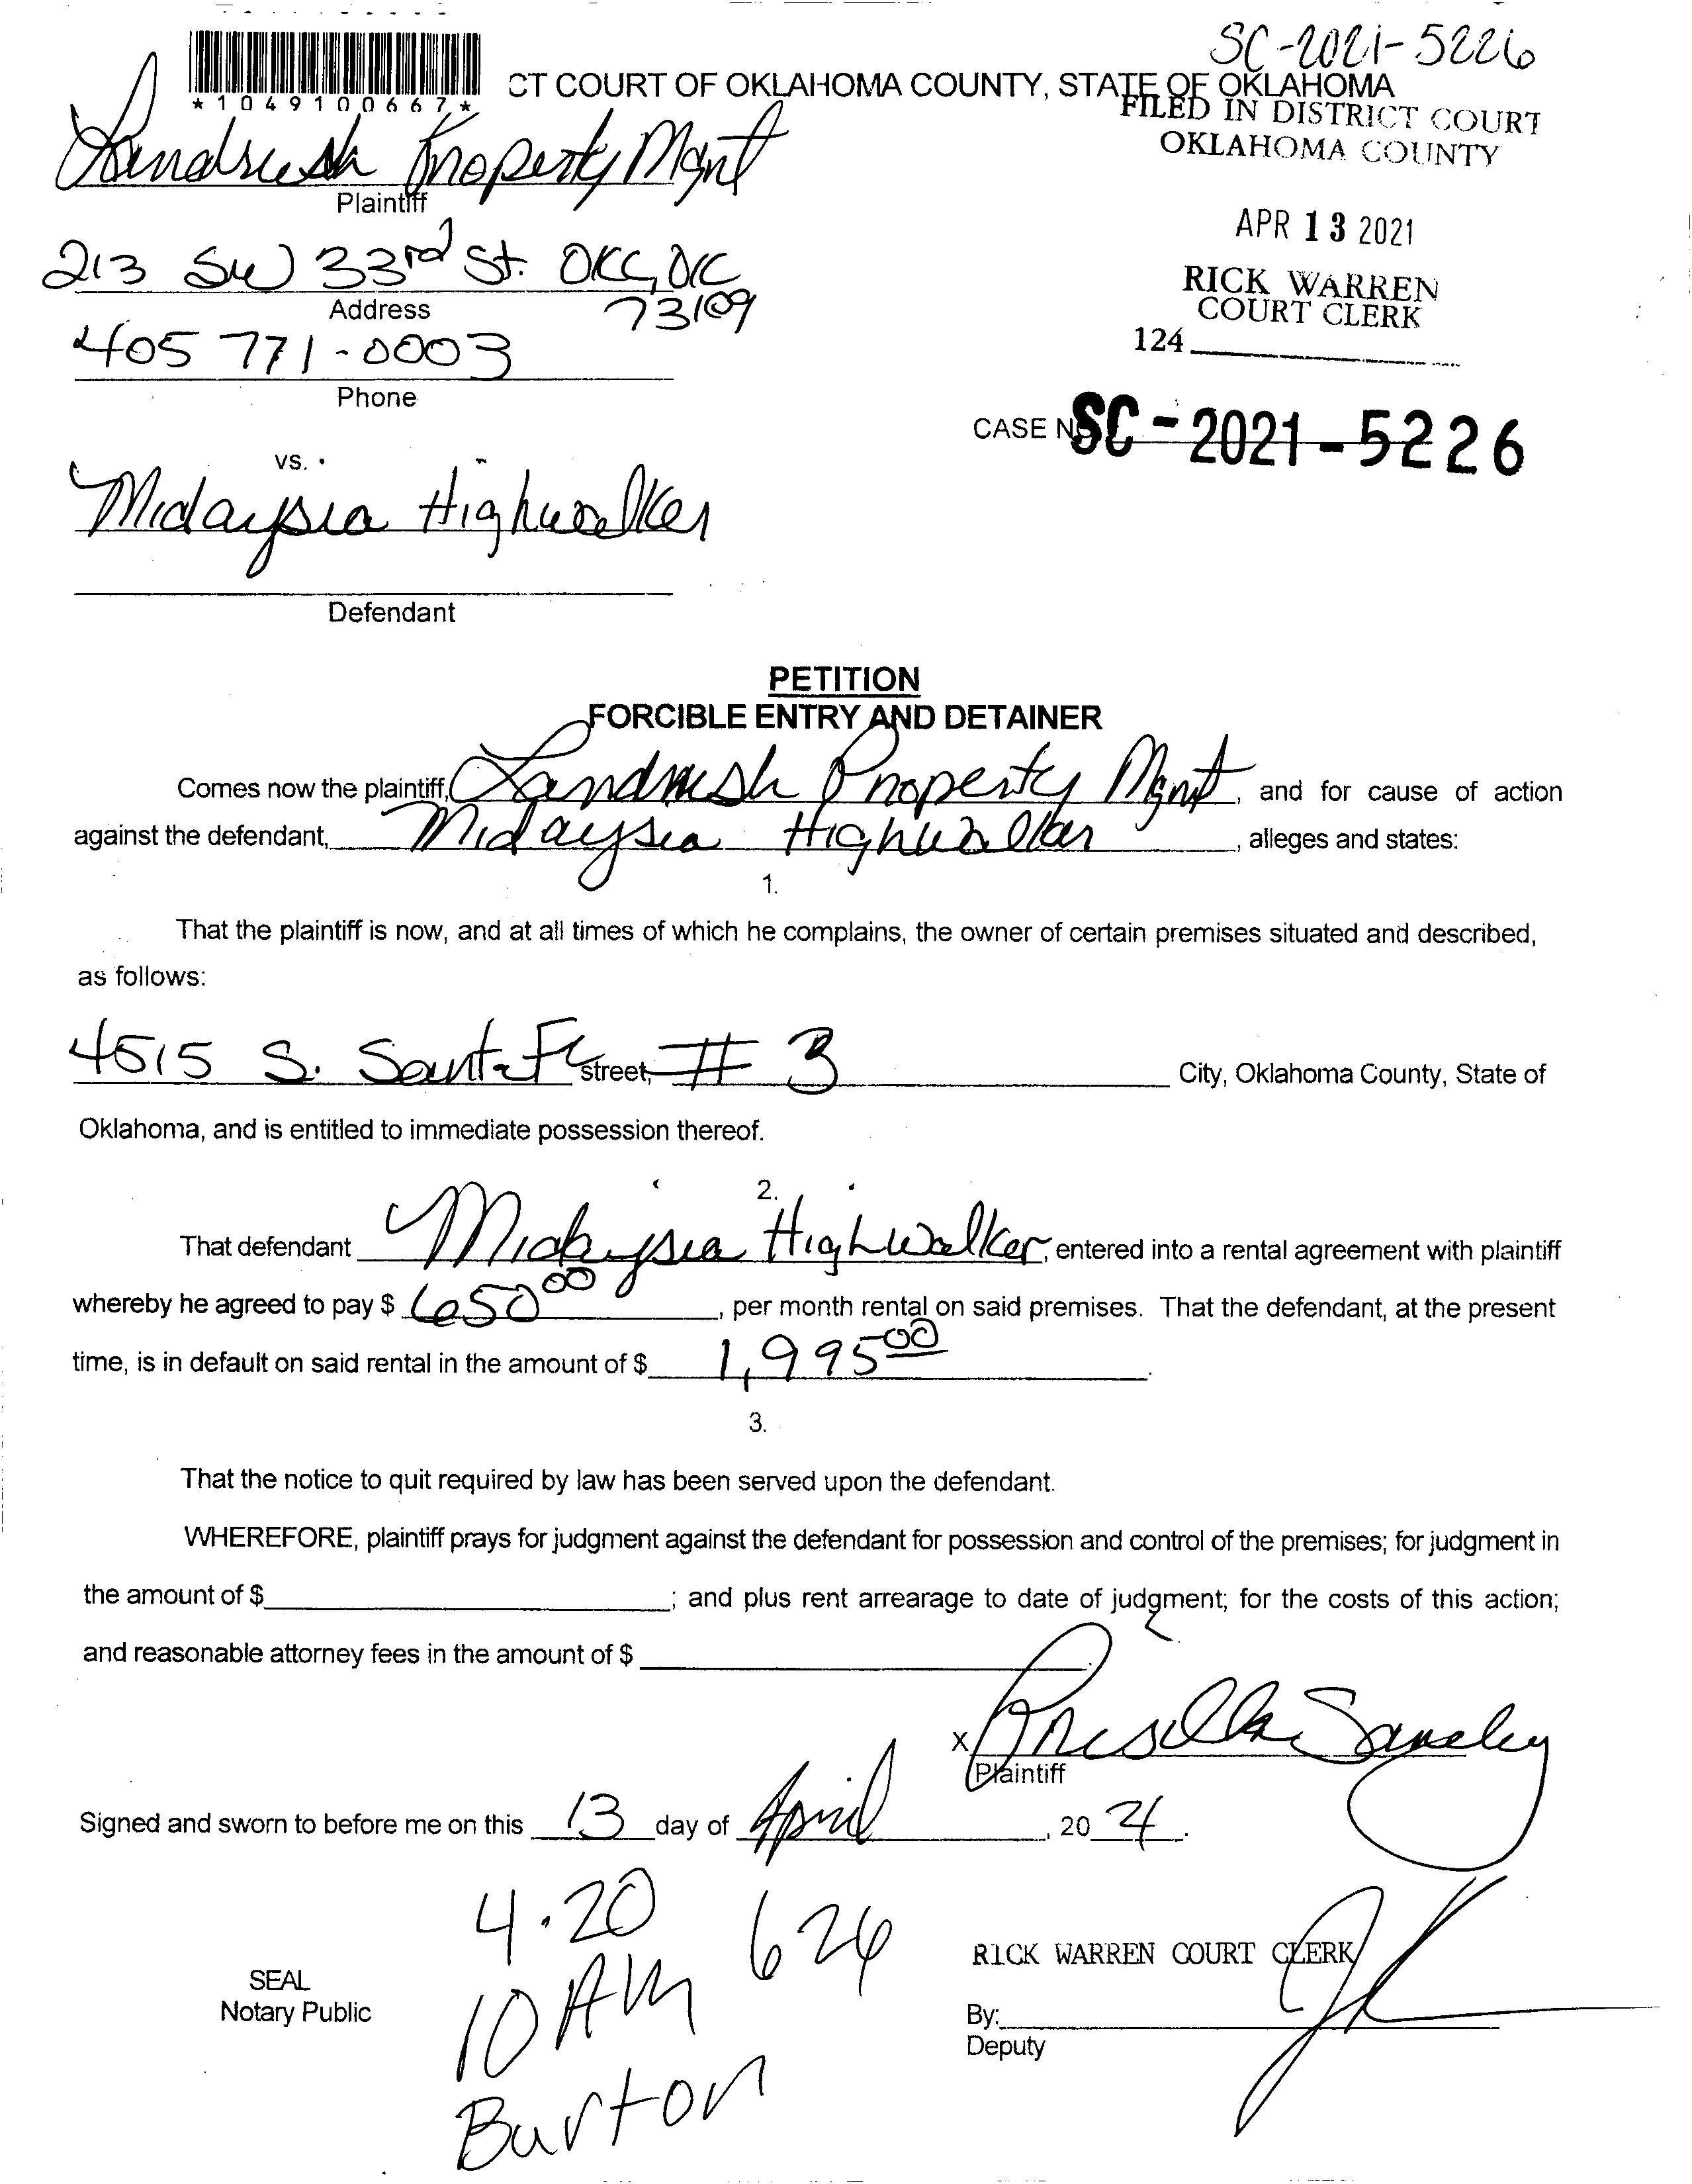 SC-2021-5226
*1049100667*
CT COURT OF OKLAHOMA COUNTY, STATE OF OKLAHOMA
FILED IN DISTRICT COURT
OKLAHOMA COUNTY
Landrush Property Mgnt
Plaintiff
APR 13 2021
213 SW 33rd St. OKC, OK
73109
Address
RICK WARREN
COURT CLERK
124
405 771-0003
Phone
CASE NO. SC-2021-5226
vs.
Midaysia Highwalker
Defendant
PETITION
FORCIBLE ENTRY AND DETAINER
Comes now the plaintiff, Landrush Property Mgnt, and for cause of action
against the defendant, Midaysia Highwalker, alleges and states:
1.
That the plaintiff is now, and at all times of which he complains, the owner of certain premises situated and described,
as follows:
4515 S. Santa Fe street, # 3 City, Oklahoma County, State of
Oklahoma, and is entitled to immediate possession thereof.
2.
That defendant Midaysia Highwalker, entered into a rental agreement with plaintiff
whereby he agreed to pay $ 650 00, per month rental on said premises. That the defendant, at the present
time, is in default on said rental in the amount of $ 1,995 00.
3.
That the notice to quit required by law has been served upon the defendant.
WHEREFORE, plaintiff prays for judgment against the defendant for possession and control of the premises; for judgment in
the amount of $ ; and plus rent arrearage to date of judgment; for the costs of this action;
and reasonable attorney fees in the amount of $ .
x Priscilla
Plaintiff
Signed and sworn to before me on this 13 day of April, 20 21.
4.20 626
10 AM
Burton
SEAL
Notary Public
RICK WARREN COURT CLERK
By:
Deputy